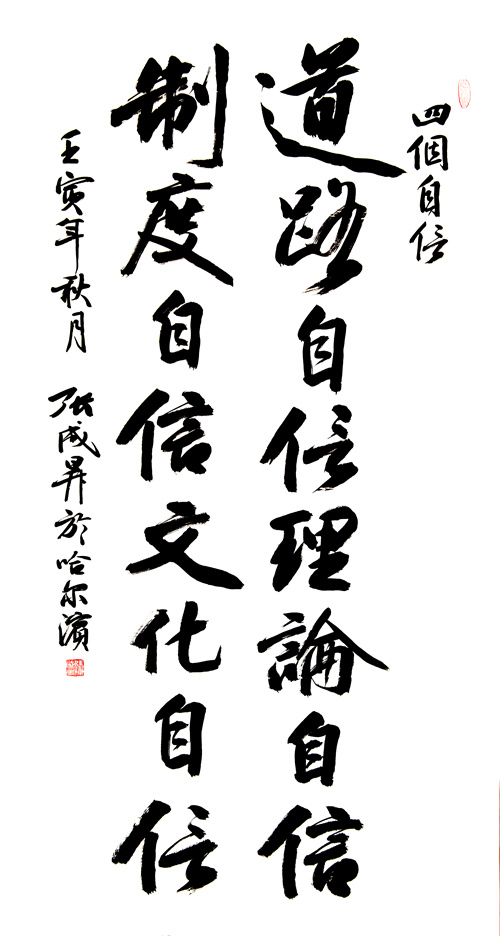 四個自信
道路自信理論自信
制度自信文化自信
壬寅年秋月 张成昇於哈尔濱